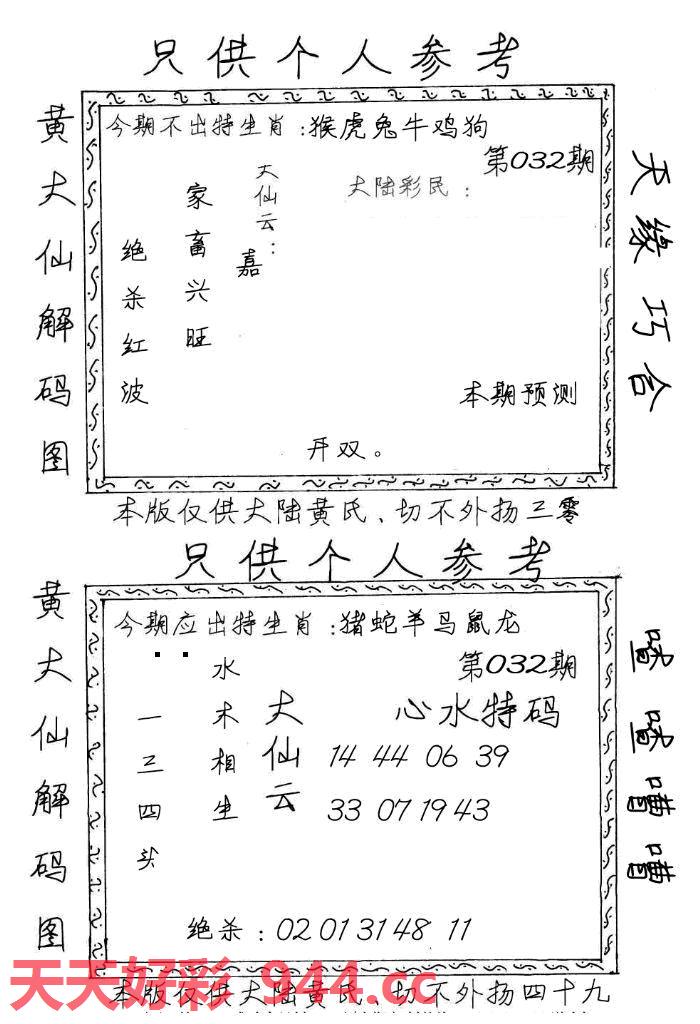 只供个人参考
黄大仙解码图
今期不出特生肖：猴虎兔牛鸡狗
第032期
大陆彩民：
大仙云：
嘉
家畜兴旺
绝杀红波
本期预测
开双。
天缘巧合
本版仅供大陆黄氏、切不外扬三零
只供个人参考
黄大仙解码图
今期应出特生肖：猪蛇羊马鼠龙
第032期
心水特码
14 44 06 39
33 07 19 43
大仙云
水木相生
一三四头
绝杀：02 01 31 48 11
天天好彩 944.cc
本版仅供大陆黄氏、切不外扬四十九